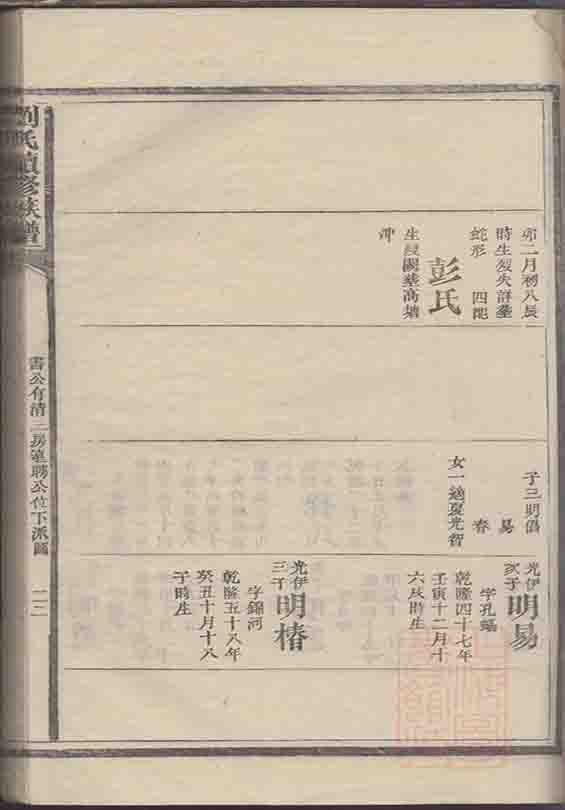 卯二月初八辰
時生歿失詳塟
蛇形 四配
彭氏
生歿闕塟高塘
沖
子三明僞
易
春
女一適夏光智
光伊
次子
明易
字孔
乾隆四十七年
壬寅十二月十
六戌時生
光伊
三子
明椿
字錦河
乾隆五十八年
癸丑十月十八
子時生
劉氏續修族譜
書公有清二房 聘公位下派圖
二二